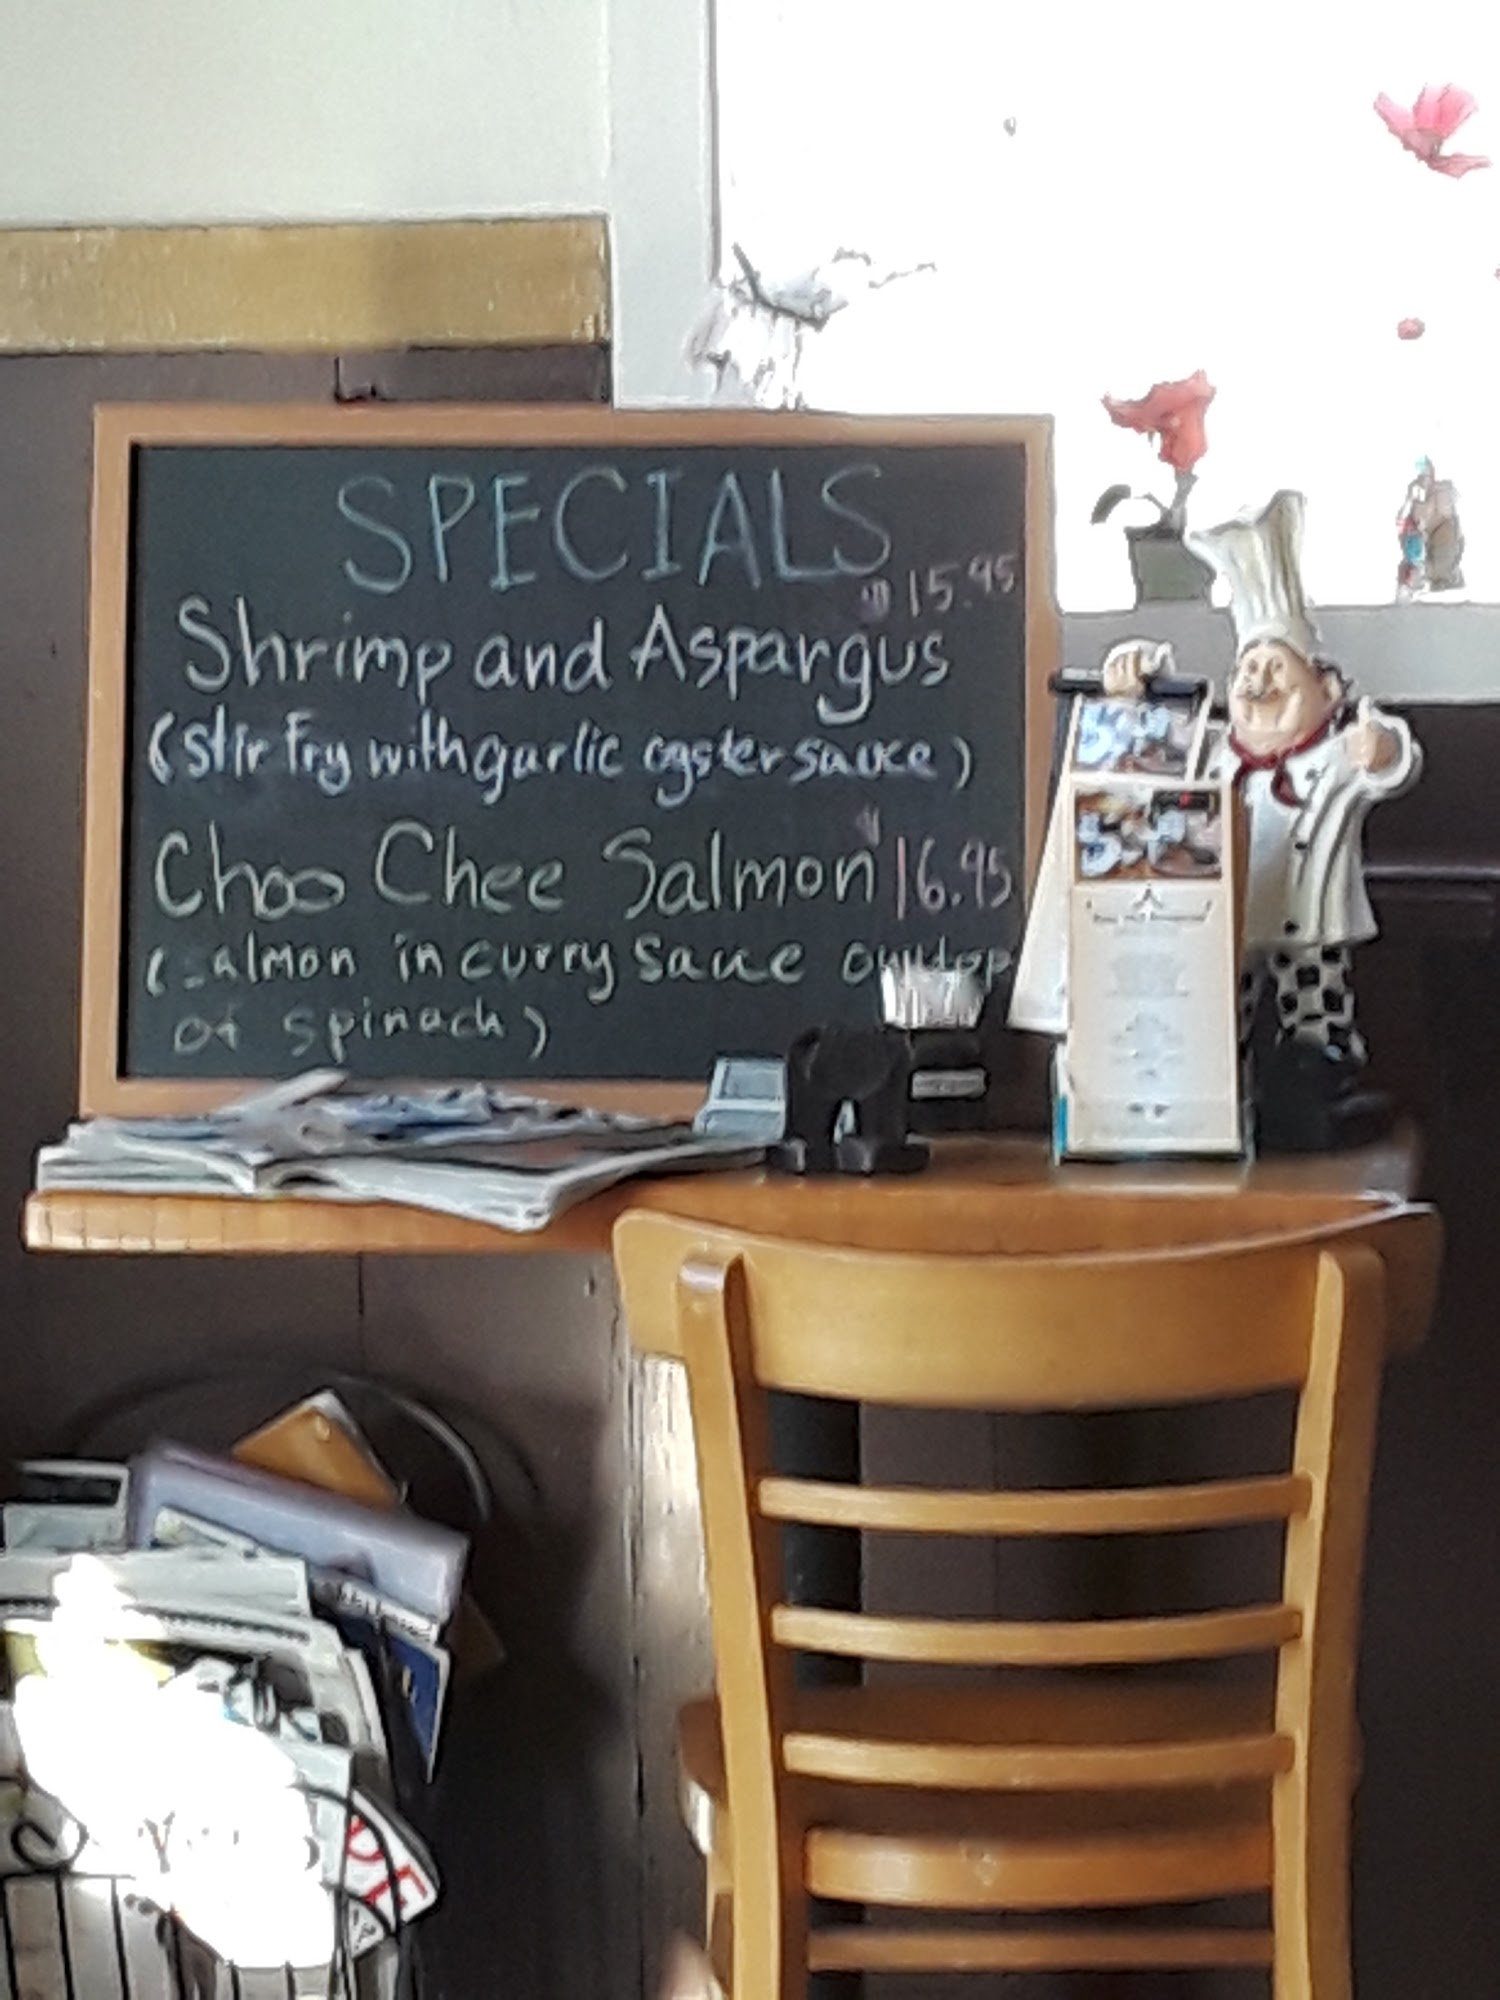 SPECIALS
$15.95
Shrimp and Aspargus
(stir fry with garlic oyster sauce)
Choo Chee Salmon $16.95
(salmon in curry sauce on top
of spinach)
DE